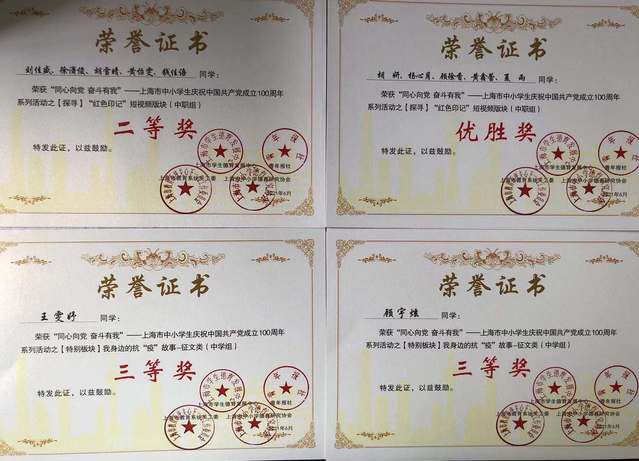 荣誉证书
刘佳威、徐蒲俊、胡雪晴、黄怡雯、钱佳语 同学：
荣获“同心向党 奋斗有我”——上海市中小学生庆祝中国共产党成立100周年
系列活动之【探寻】“红色印记”短视频版块（中职组）
二等奖
特发此证，以兹鼓励。
上海市学生德育发展中心 青年报社
上海市教育系统关工委 上海市中小学德育研究协会
2021年6月
荣誉证书
胡妍、杨心月、顾徐香、黄鑫蕾、夏雨 同学：
荣获“同心向党 奋斗有我”——上海市中小学生庆祝中国共产党成立100周年
系列活动之【探寻】“红色印记”短视频版块（中职组）
优胜奖
特发此证，以兹鼓励。
上海市学生德育发展中心 青年报社
上海市教育系统关工委 上海市中小学德育研究协会
2021年6月
荣誉证书
王雯妤 同学：
荣获“同心向党 奋斗有我”——上海市中小学生庆祝中国共产党成立100周年
系列活动之【特别板块】我身边的抗“疫”故事-征文类（中学组）
三等奖
特发此证，以兹鼓励。
上海市学生德育发展中心 青年报社
上海市教育系统关工委 上海市中小学德育研究协会
2021年6月
荣誉证书
顾宇炫 同学：
荣获“同心向党 奋斗有我”——上海市中小学生庆祝中国共产党成立100周年
系列活动之【特别板块】我身边的抗“疫”故事-征文类（中学组）
三等奖
特发此证，以兹鼓励。
上海市学生德育发展中心 青年报社
上海市教育系统关工委 上海市中小学德育研究协会
2021年6月